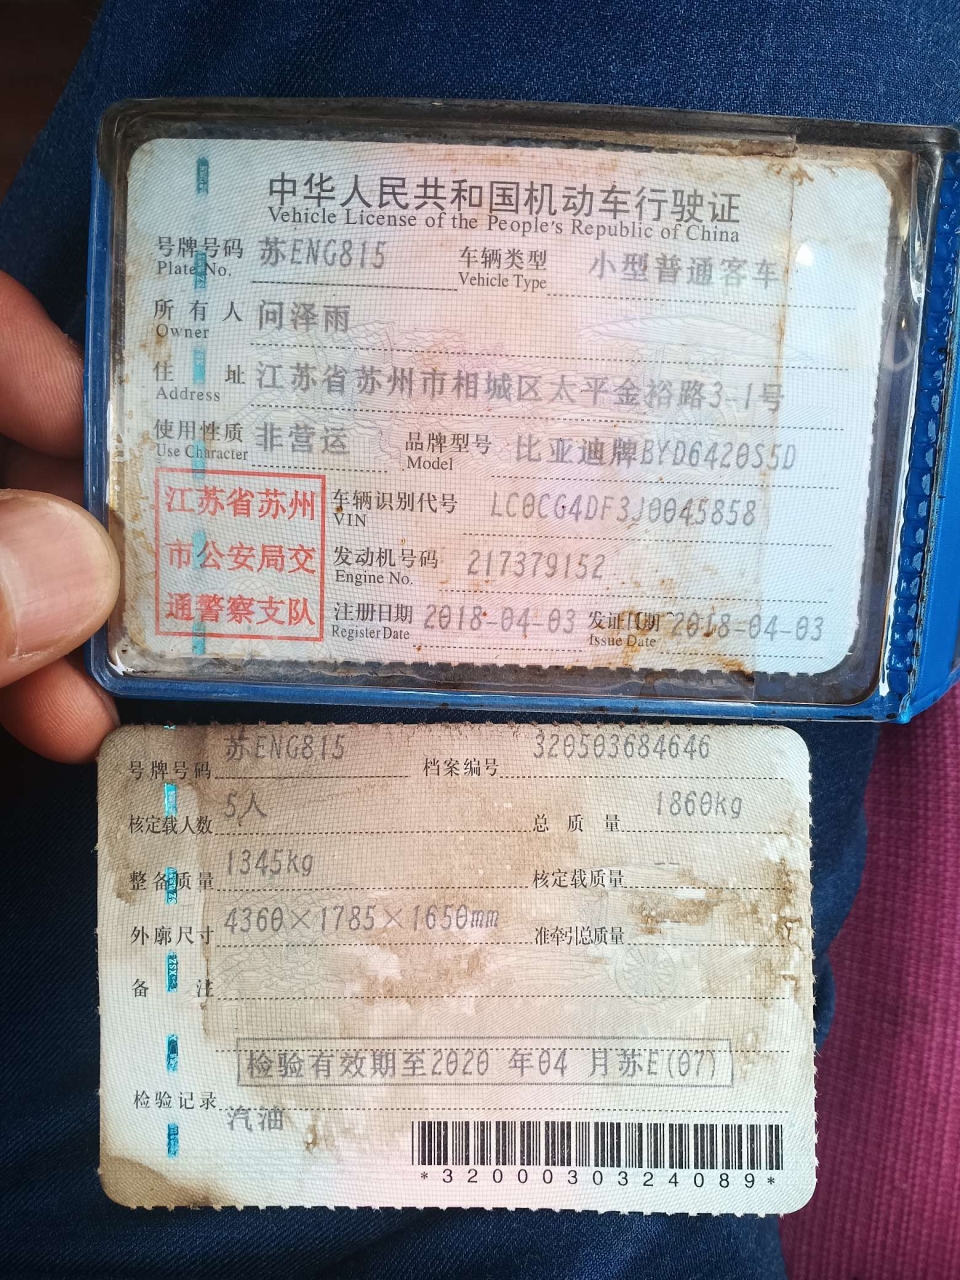 中华人民共和国机动车行驶证
Vehicle License of the People's Republic of China
号牌号码 苏ENG815 车辆类型 小型普通客车
Plate No. Vehicle Type
所有人 问泽雨
Owner
住址 江苏省苏州市相城区太平金裕路3-1号
Address
使用性质 非营运 品牌型号 比亚迪牌BYD6420S5D
Use Character Model
江苏省苏州
市公安局交
通警察支队
车辆识别代号 LC0CG4DF3J0045858
VIN
发动机号码 217379152
Engine No.
注册日期 2018-04-03 发证日期 2018-04-03
Register Date Issue Date
号牌号码 苏ENG815 档案编号 320503684646
核定载人数 5人 总质量 1860kg
整备质量 1345kg 核定载质量 --
外廓尺寸 4360×1785×1650mm 准牵引总质量
备注
检验有效期至2020 年04 月苏E(07)
检验记录
汽油
*3200030324089*